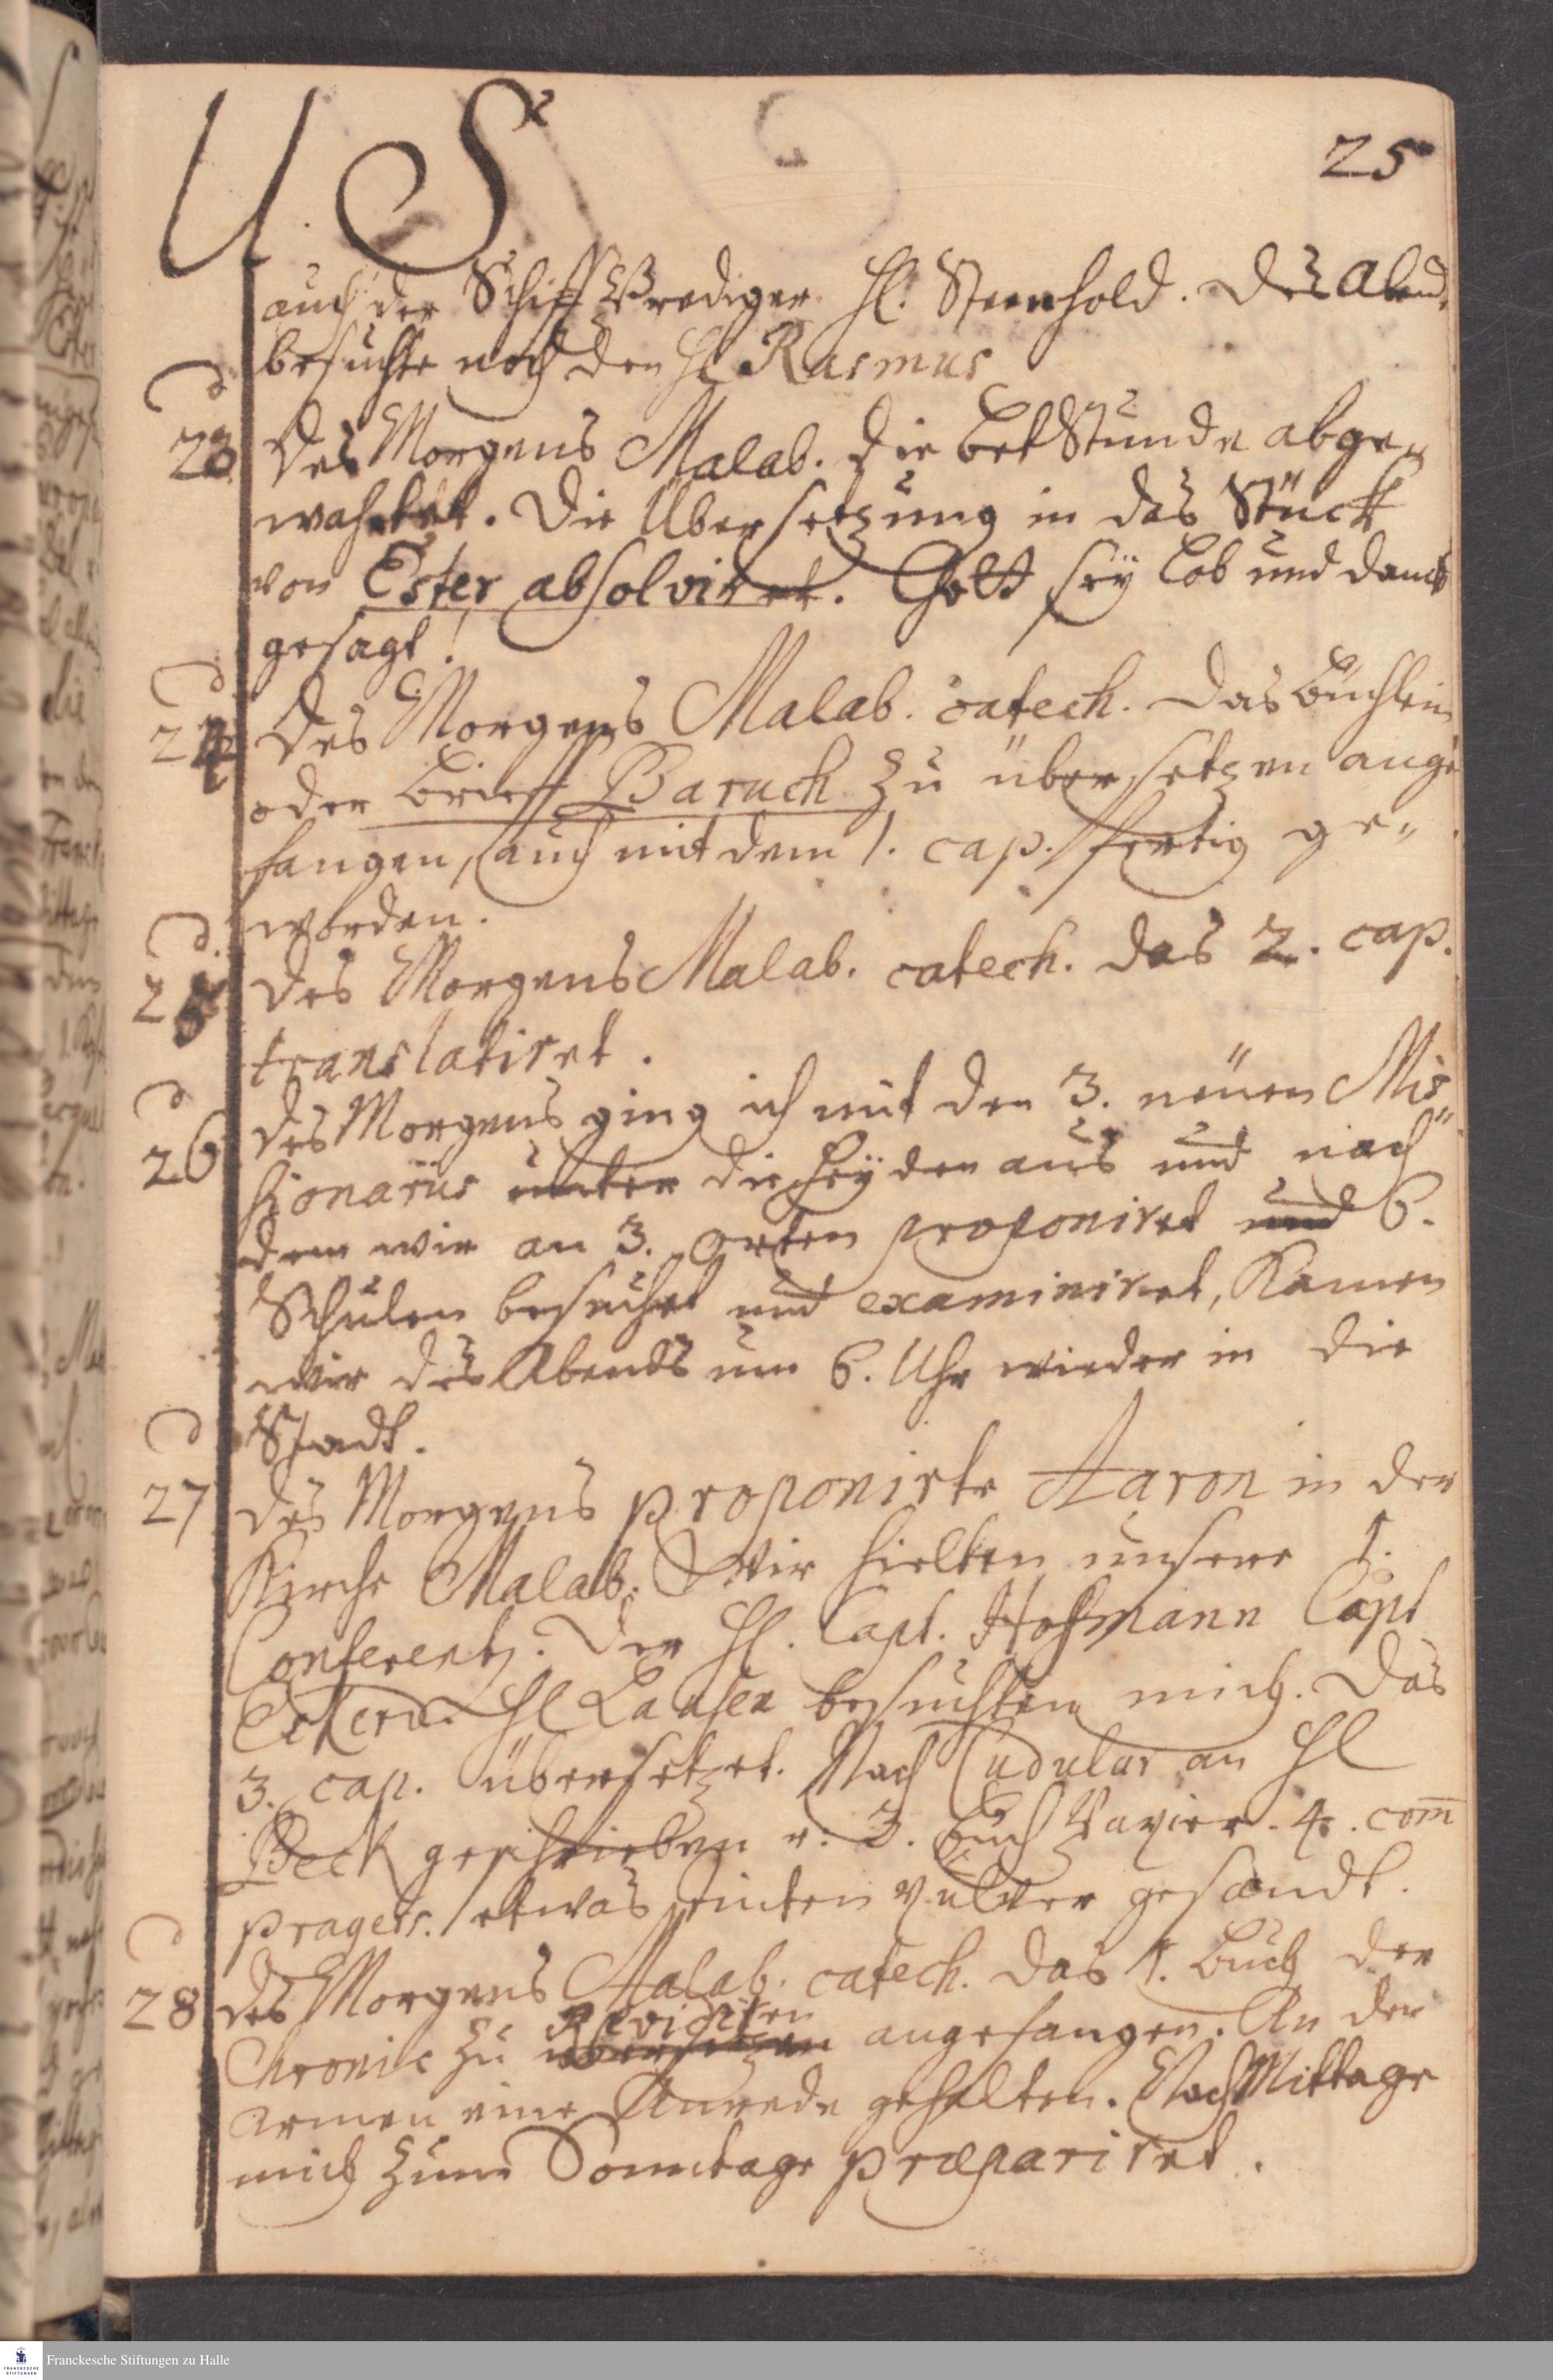 25
auch der Schiff Prediger H. Steenhold. Des Abend.
besuchte noch den H Rasmus
d
23 Des Morgens Malab. die betStunde abge„
wahrtet. Die Übersetzung in das Stück
von Ester absolviret. Gott sey lob und danck
gesagt!
d
24 Des Morgens Malab. catech. das Büchlein
oder Brieff Baruch zu übersetzen ange
fangen, auch mit dem 1. cap. fertig ge„
worden.
d.
25 des Morgens Malab. catech. das 2. cap.
translatiret.
d
26 des Morgens ging ich mit den 3. neuen Mis„
sionarius unter die Heyden aus und nach
dem wir an 3. Orten proponiret und 6.
Schulen besuchet und examiniret, Kamen
wir des Abends um 6. Uhr wieder in die
Stadt.
d
27 des Morgens proponirte Aaron in der
Kirche Malab. Wir hielten unsere
Conferentz. Der H. Capt. Hofmann Capt
H besuchten mich. Das
3. cap. übersetzet. Nach Cudulur an H
Beck geschrieben u. 3. buch Papier. 4. com̄
pragets. etwas tinten pulver gesandt.
d
28 des Morgens Malab. catech. das 1. buch der
Chronic zu übersetzen revidiren angefangen. An der
armen eine Anrede gehalten. NachMittage
mich zum Sonntage præpariret.
Franckesche Stiftungen zu Halle